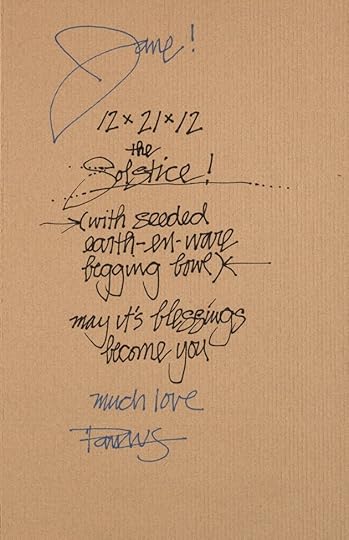 Jane!
12 × 21 × 12
the
Solstice!
(with seeded
earth-en-ware
begging bowl)
may it's blessings
become you
much love